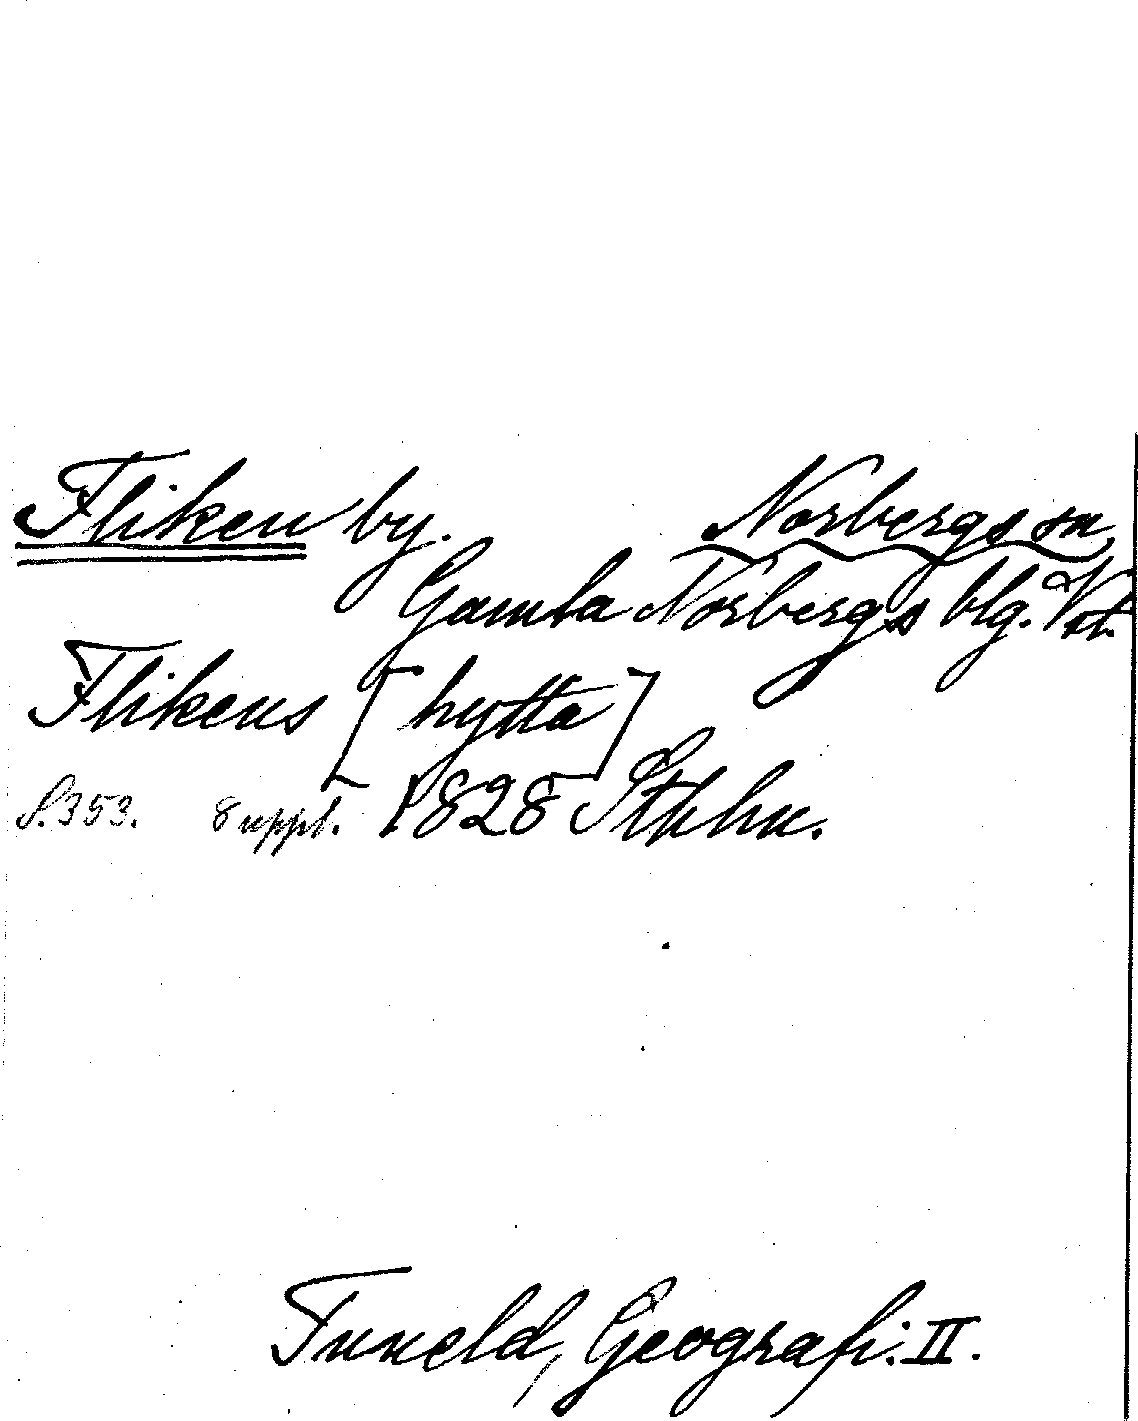 Fliken by. Norbergs sn,
Gamla Norbergs blg. Vstm.
Flikens [hytta]
S.353. Suppl. 1828 Sthhn.
Tuneld, Geografi. II.